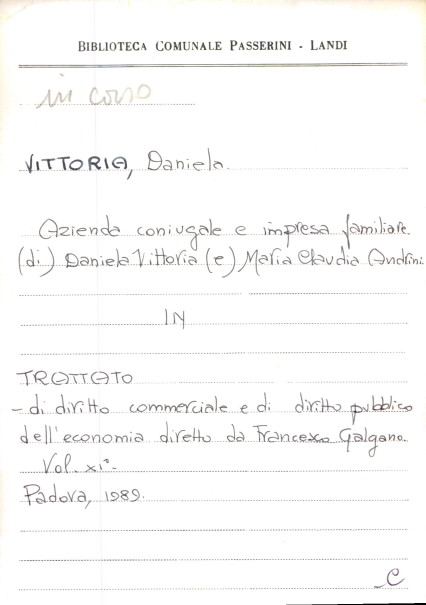 BIBLIOTECA COMUNALE PASSERINI - LANDI
in corso
VITTORIA, Daniela.
Azienda coniugale e impresa familiare.
(di) Daniela Vittoria (e) Maria Claudia Andrini.
IN
TRATTATO
- di diritto commerciale e di diritto pubblico
dell'economia diretto da Francesco Galgano.
Vol. XI°.
Padova, 1989.
C